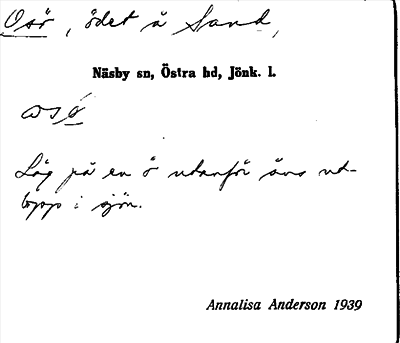 Osör, ödet å Sand,
Näsby sn, Östra hd, Jönk. l.
Låg på en ö utanför åns ut-
lopp i sjön.
Annalisa Anderson 1939